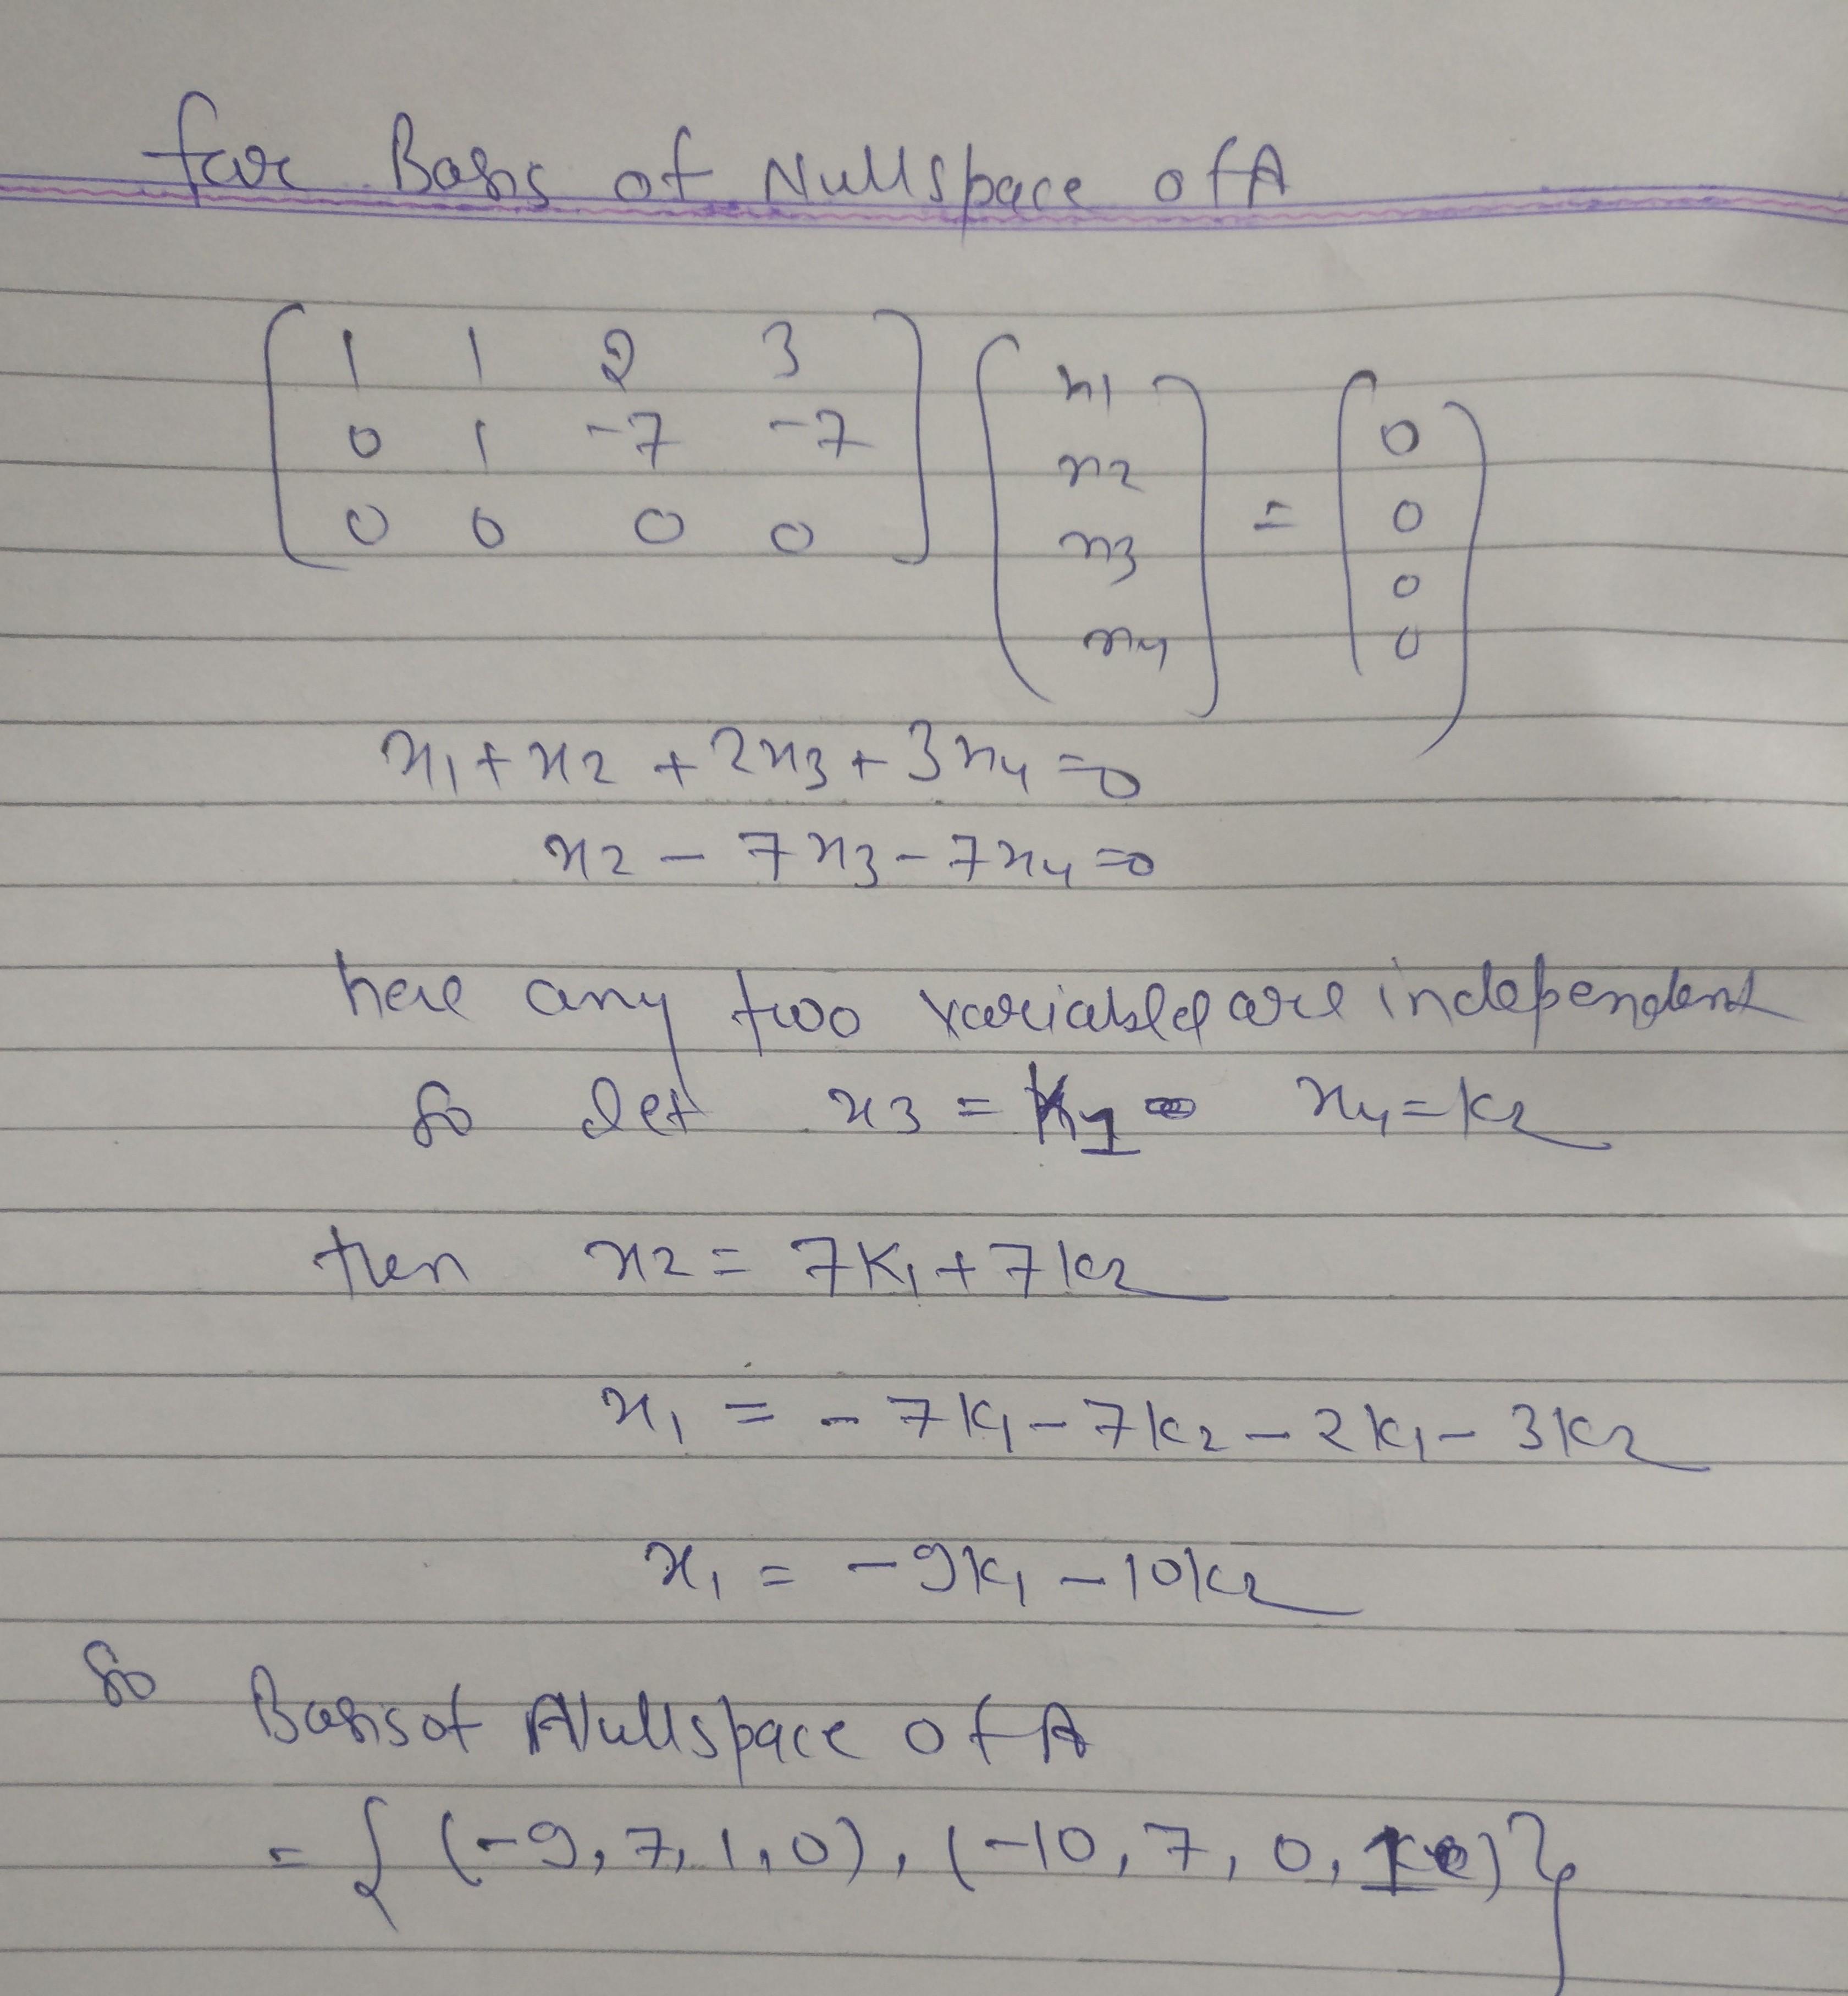 for Basis of Nullspace of A
[1 1 2 3
0 1 -7 -7
0 0 0 0] [x1
x2
x3
x4] = [0
0
0
0]
x1 + x2 + 2x3 + 3x4 = 0
x2 - 7x3 - 7x4 = 0
here any two variable are independent
so let x3 = K1 x4 = k2
then x2 = 7K1 + 7k2
x1 = - 7k1 - 7k2 - 2k1 - 3k2
x1 = -9k1 - 10k2
So Basis of Nullspace of A
= { (-9, 7, 1, 0), (-10, 7, 0, 1) }